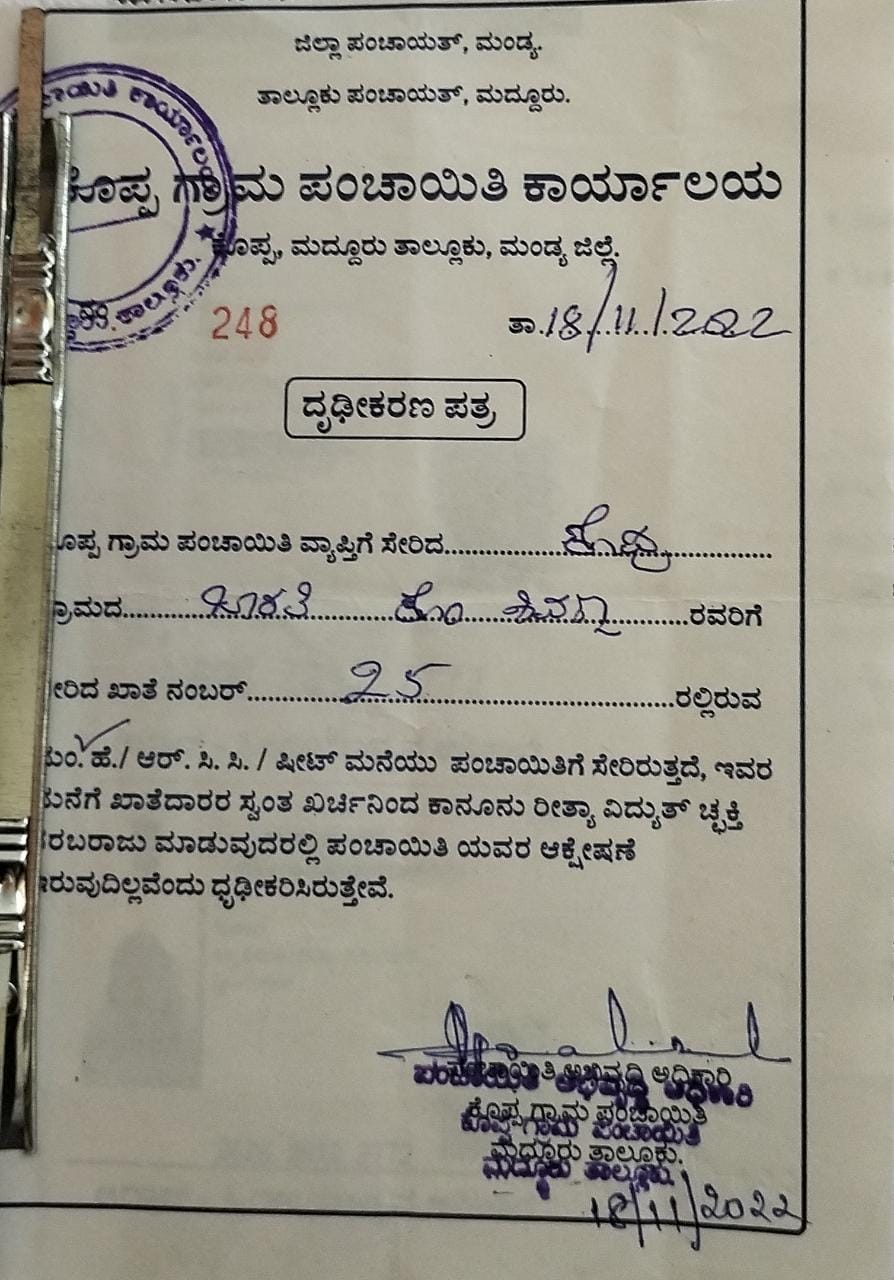 ಜಿಲ್ಲಾ ಪಂಚಾಯತ್, ಮಂಡ್ಯ.
ತಾಲ್ಲೂಕು ಪಂಚಾಯತ್, ಮದ್ದೂರು.
ಕೊಪ್ಪ ಗ್ರಾಮ ಪಂಚಾಯಿತಿ ಕಾರ್ಯಾಲಯ
ಕೊಪ್ಪ, ಮದ್ದೂರು ತಾಲ್ಲೂಕು, ಮಂಡ್ಯ ಜಿಲ್ಲೆ.
248 ತಾ. 18/11/2022
ದೃಢೀಕರಣ ಪತ್ರ
ಗ್ರಾಮ ಪಂಚಾಯಿತಿ ವ್ಯಾಪ್ತಿಗೆ ಸೇರಿದ ಕೊಪ್ಪ
ರವರಿಗೆ
ಖಾತೆ ನಂಬರ್ 25 ರಲ್ಲಿರುವ
ಹೆ./ ಆರ್. ಸಿ. ಸಿ. / ಷೀಟ್ ಮನೆಯು ಪಂಚಾಯಿತಿಗೆ ಸೇರಿರುತ್ತದೆ, ಇವರ
ಖಾತೆದಾರರ ಸ್ವಂತ ಖರ್ಚಿನಿಂದ ಕಾನೂನು ರೀತ್ಯಾ ವಿದ್ಯುತ್ ಚ್ಛಕ್ತಿ
ಮಾಡುವುದರಲ್ಲಿ ಪಂಚಾಯಿತಿ ಯವರ ಆಕ್ಷೇಷಣೆ
ಧೃಢೀಕರಿಸಿರುತ್ತೇವೆ.
ಪಂಚಾಯಿತಿ ಅಭಿವೃದ್ಧಿ ಅಧಿಕಾರಿ
ಕೊಪ್ಪ ಗ್ರಾಮ ಪಂಚಾಯಿತಿ
ಮದ್ದೂರು ತಾಲ್ಲೂಕು.
18/11/2022